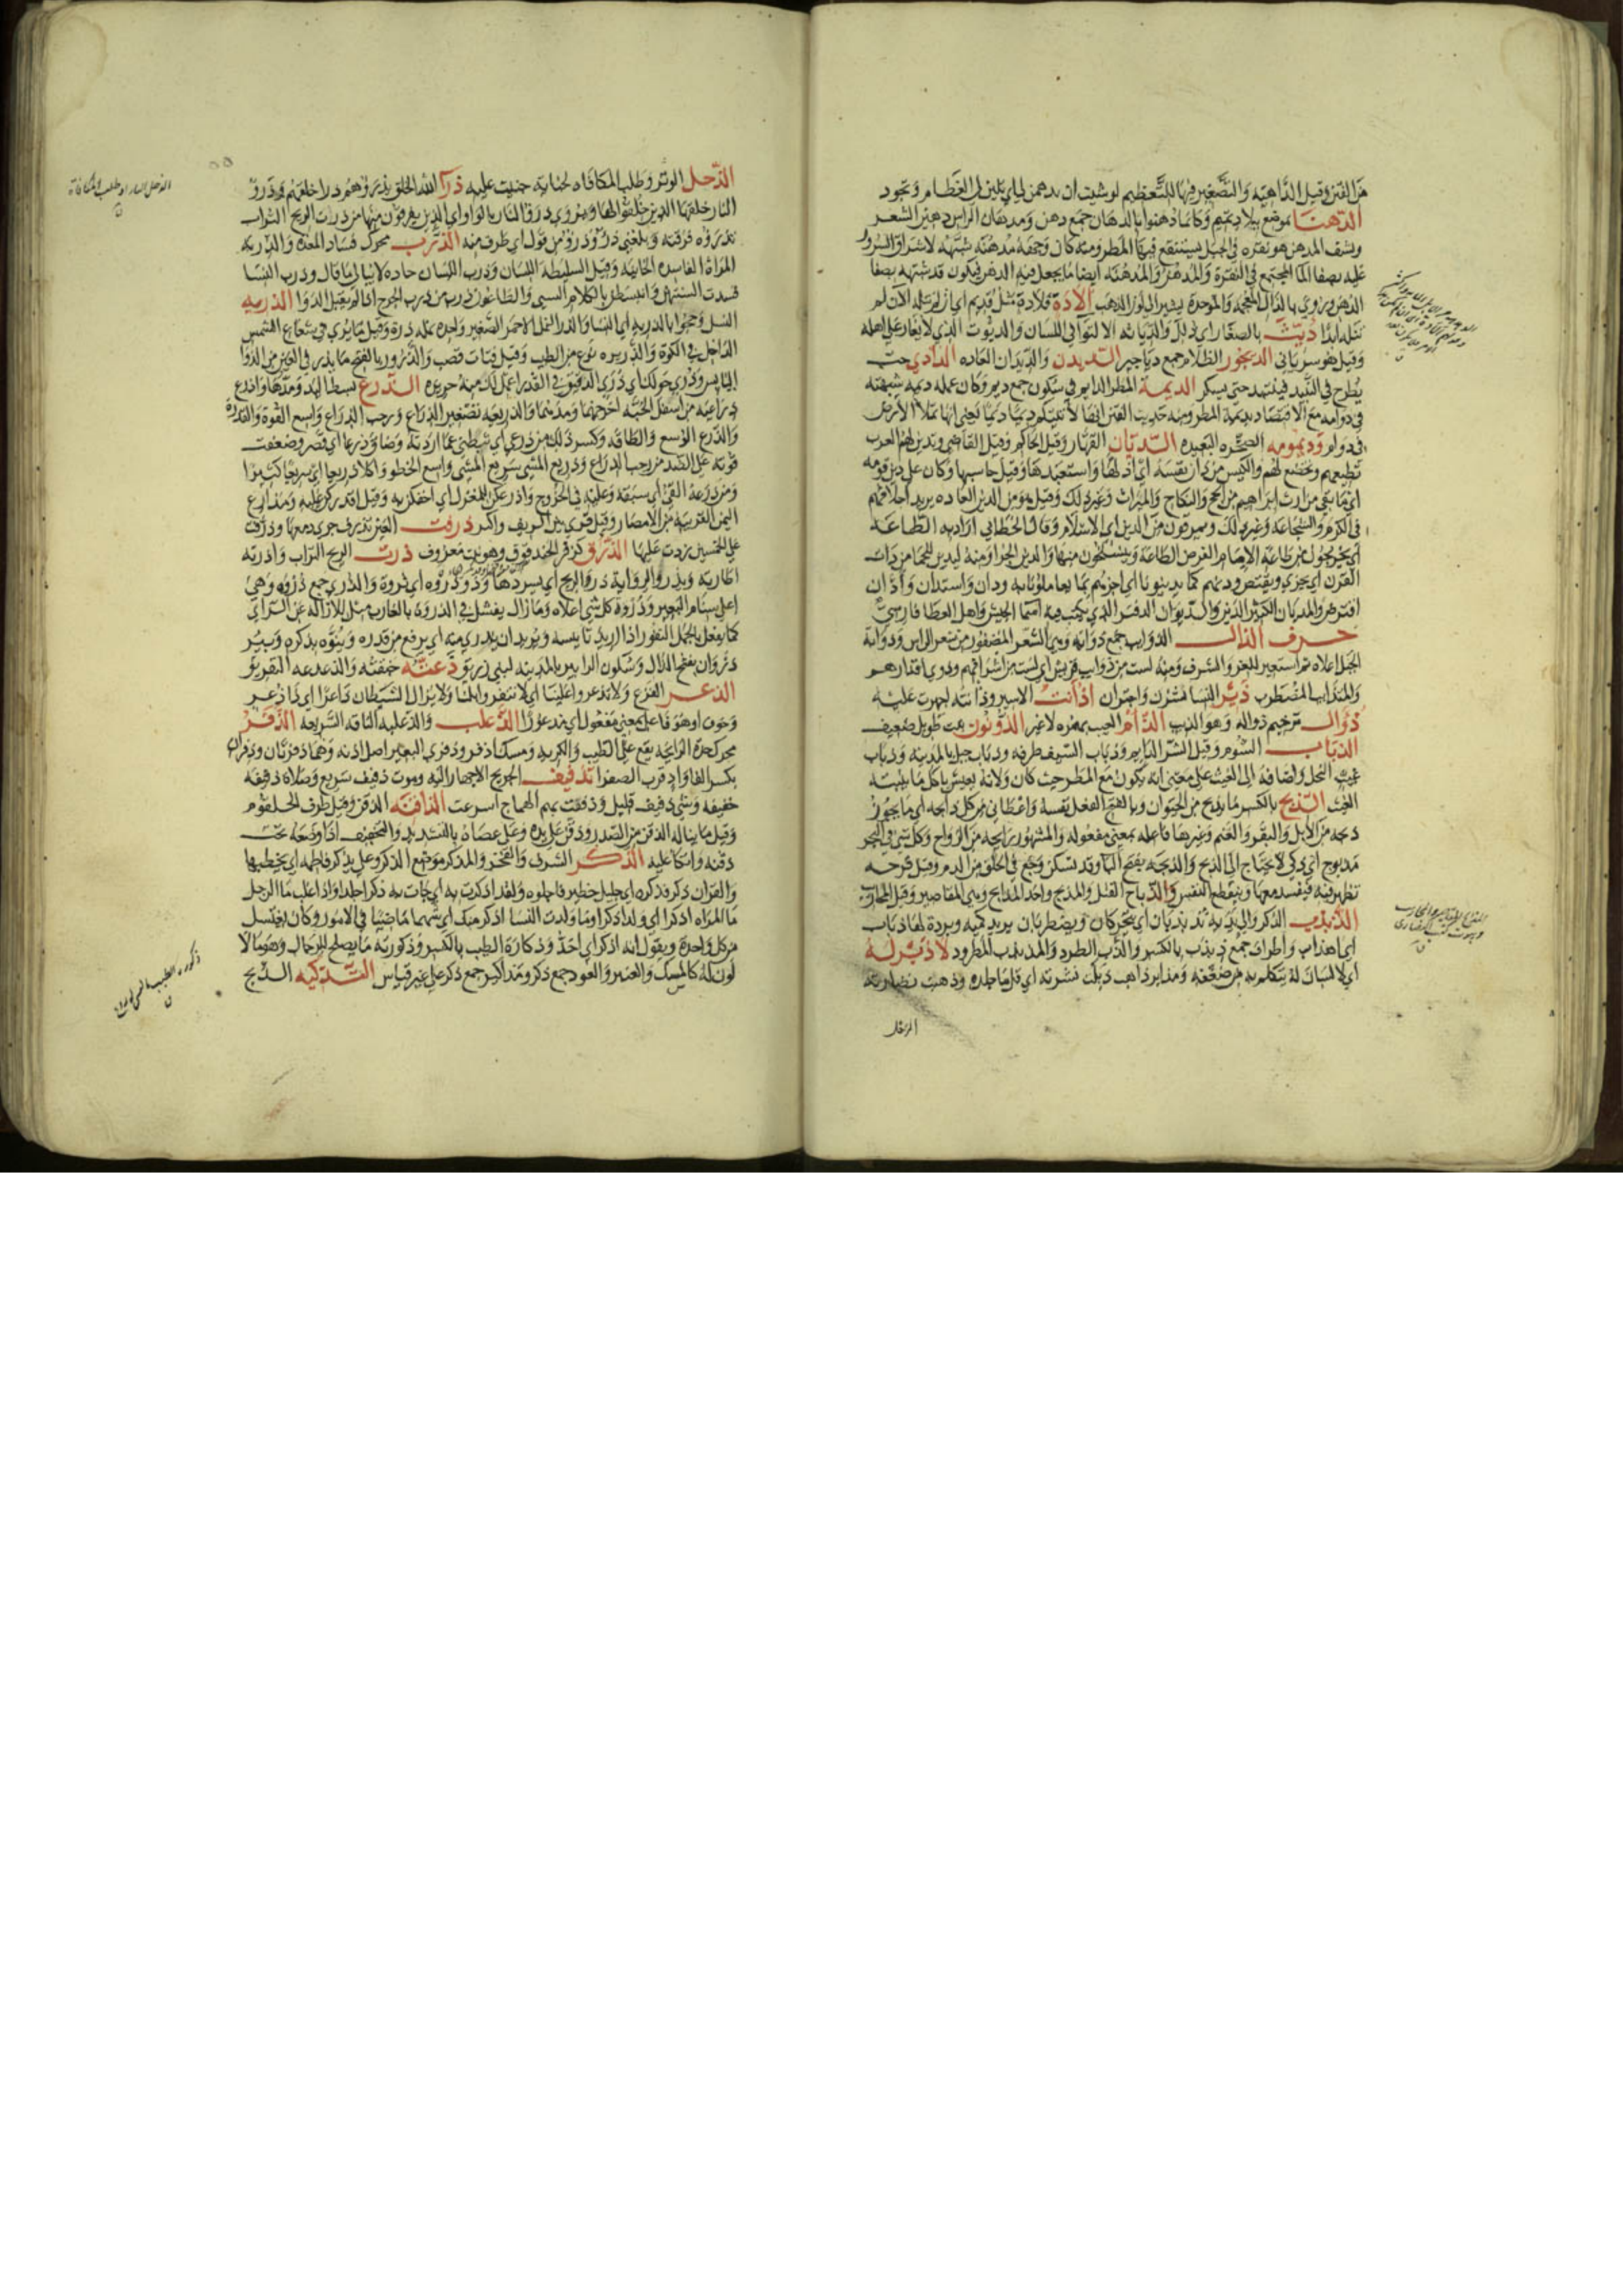 من الفتن وقيل الداهية والتصغير فيها للتعظيم لو شئت ان يدهمز لي اي يلين لي الطعام ويجود
الدهنا موضع ببلاد تميم وكانما دهنوا بالدهان جمع دهن ومدهان الراس دهين الشعر
ونشف المدهن هو نقرة في الجبل يستنقع فيها المطر ومنه كان وجهه مدهنة شبهه لاشراق السرور
عليه بصفا الما المجتمع في النقرة والمدهن والمدهنة ايضا ما يجعل فيه الدهن فيكون قد شبهه بصفا
الدهن ويروى بالذال المعجمة والموحدة
ديث بالصغار اي ذلل والدياثة الالتوا في اللسان والديوث الذي لا يغار على اهله
وقيل هو سرياني الديجور الظلام جمع دياجير الديدن والديدان العادة الدادي حب
يطرح في النبيذ فيشتد حتى يسكر الديمة المطر الدايم في سكون جمع ديم وكان عمله ديمة شبهته
في دوامه مع الاقتصاد بديمة المطر ومنه حديث الفتن انها لاتيتكم ديما ديما يعني انها تملا الارض
في دوام وديمومه الصحرة البعيدة الديان القهار وقيل الحاكم وقيل القاضي وتدين لهم العرب
تطيعهم وتخضع لهم والكيس من دان نفسه اي اذلها واستعبدها وقيل حاسبها وكان على دين قومه
اي ما بقي من ارث ابراهيم من الحج والنكاح والميراث وغير ذلك وقيل هو من الدين العادة يريد اخلاقهم
في الكرم والشجاعة وغير ذلك ويمرقون من الدين اي الاسلام وقال الخطابي اراد به الطاعة
اي يخرجون من طاعة الامام المفترض الطاعة وينسلخون منها والدين الجزا ومنه ليدين للجما من ذات
القرن اي يجزي ويقتص ودنهم كما يدينونا اي اجزهم بما يعاملونا به ودان واستدان وادان
اقترض والمديان الكثير الدين والديوان الدفتر الذي يكتب فيه اسما الجيش واهل العطا فارسي
حرف الذال الذوايب جمع ذوابة وهي الشعر المضفور من شعر الراس وذوابة
الجبل اعلاه ثم استعير للعز والشرف ومنه لست من ذوايب قريش اي لست من اشرافهم وذوي اقدارهم
والمتذايب المضطرب ذئر النسا نشزن واجتران
ذؤال ترخيم ذوالة وهو الذيب الذام العيب بهمزه لا غير الذونون نبت طويل ضعيف
الذباب الشوم وقيل الشر الدايم وذباب السيف طرفه وذباب جبل بالمدينة وذباب
غيث النحل واضافه الى الغيث على معنى انه يكون مع المطر حيث كان ولانه يعيش باكل ما ينبته
الغيث الذبح بالكسر ما يذبح من الحيوان وبالفتح الفعل نفسه واعطاني من كل ذابحة اي ما يجوز
ذبحه من الابل والبقر والغنم وغيرها فاعله بمعنى مفعوله والمشهور رايحة من الرواح وكل شي في البحر
مذبوح اي ذكي لا يحتاج الى الذبح والذبحة بفتح البا وقد تسكن وجع في الحلق من الدم وقيل قرحة
تظهر فيه فينسد معها وينقطع النفس والذباح القتل والمذبح واحد المذابح وهي المقاصير وقيل المحاريب
الذبذب الذكر تذبذبان اي يتحركان ويضطربان يريد كميه وبردة لها ذباب
اي اهداب واطراف جمع ذبذب بالكسر والذب الطرد والمذبذب المطرود لا ذبر له
اي لا لسان له يتكلم به من ضعفه ذبلت بشرته اي قل ما جلده وذهبت نضارته
الذحل الوتر وطلب المكافاة لجناية جنيت عليه ذرا الله الخلق يذروهم ذرا خلقهم وذرو
النار خلقها الذين خلقوا لها ويروى ذرو النار بالواو اي الذين يفرقون فيها من ذرت الريح التراب
تذروه فرقته وبلغني ذرو وذرو من قول اي طرف منه الذرب محرك فساد المعدة والذربة
المراة الفاسدة الخاينة وقيل السليطة اللسان وذرب اللسان حاده لا يبالي ما قال وذرب النسا
فسدت السنتهن وانبسطن بالكلام السيي والطاعون ذرب من ذرب الجرح اذا لم يقبل الدوا الذرية
النسل وحجوا بالذرية اي النسا والذر النمل الاحمر الصغير واحده نملة ذرة وقيل ما يرى في شعاع الشمس
الداخل في الكوة والذريرة نوع من الطيب وقيل فتات قصب والذرور بالفتح ما يذر في العين من الدوا
اليابس وذري حولك اي ذري الدقيق في القدر اعمل لك منه حريرة الذرع بسط اليد ومدها واذرع
ذراعيه من اسفل الجبة اخرجهما ومدهما والذريعة تصغير الذراع ورحب الذراع واسع القوة والقدرة
والذرع الوسع والطاقة وكسر ذلك من ذرعي اي ثبطني عما اردته وضاق ذرعا اي قصر وضعفت
قوته على الضد من رحب الذراع وذريع المشي سريع المشي واسع الخطو واكلا ذريعا اي سريعا كثيرا
ومن ذرعه القي اي سبقه وغلبه في الخروج
اليمن القريبة من الامصار وقيل قرى بين الريف والبر ذرفت العين تذرف جرى دمعها وذرفت
على الخمسين زدت عليها الذرق كزفر الحندقوق وهو نبت معروف ذرت الريح التراب واذرته
اطارته ويذرو الرواية ذرو الريح اي يسردها وذو ذروة اي ثروة والذرى جمع ذروة وهي
اعلى سنام البعير وذروة كل شي اعلاه وما زال يفتل في الذروة والغارب مثل للازالة عن الراي
كما يفعل بالجمل النفور اذا اريد تانيسه ويريد ان يذري منه اي يرفع من قدره وينوه بذكره وبير
ذروان بفتح الذال وسكون الرا بير بالمدينة لبني زريق ذعته خنقته والذعذعة التفريق
الذعر الفزع ولا تذعروا علينا اي لا تنفروا ابلنا ولا يزال الشيطان ذاعرا اي ذا ذعر
وخوف او هو فاعل بمعنى مفعول اي مذعورا الذعلب والذعلبة الناقة السريعة الذفر
محرك حدة الرايحة يقع على الطيب والكريه ومسك اذفر وذفرى البعير اصل اذنه وهما ذفريان وذفران
بكسر الفا واد قرب الصفرا تذفيف الجريح الاجهاز اليه وموت ذفيف سريع وصلاة ذفيفة
خفيفة وشي ذفيف قليل وذففت بهم الهماج اسرعت الذاقنة الذقن وقيل طرف الحلقوم
وقيل ما يناله الذقن من الصدر وذقن على يده وعلى عصاه بالتشديد والتخفيف اذا وضعه تحت
ذقنه واتكا عليه الذكر الشرف والفخر والمذكر موضع الذكر وعلي يذكر فاطمة اي يخطبها
والقران ذكر فذكروه اي جليل خطير فاجلوه ولقد اذكرت به اي جات به ذكرا جلدا واذا غلب ما الرجل
ما المراة اذكرا اي ولدا ذكرا وما ولدت النسا اذكر منك اي شهما ماضيا في الامور وكان يغتسل
من كل واحدة ويقول انه اذكر اي احد وذكارة الطيب بالكسر وذكورته ما يصلح للرجال وهو ما لا
لون له كالمسك والعنبر والعود جمع ذكر ومذاكير جمع ذكر على غير قياس التذكية الذبح
الذحل الثار او طلب المكافاة